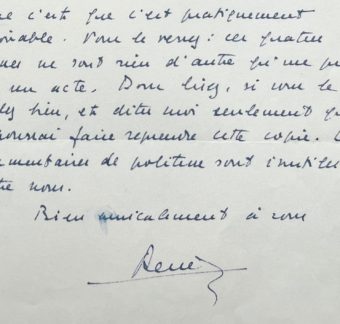 ue c'est que c'est pratiquement
Vous le verrez : ces quatre
ues ne sont rien d'autre qu'une p
un acte. Donc lisez, si vous le
lez bien, et dites moi seulement q
pourrai faire reprendre cette copie.
mmentaires de politesse sont inutiles
tre nous.
Bien amicalement à vous
René